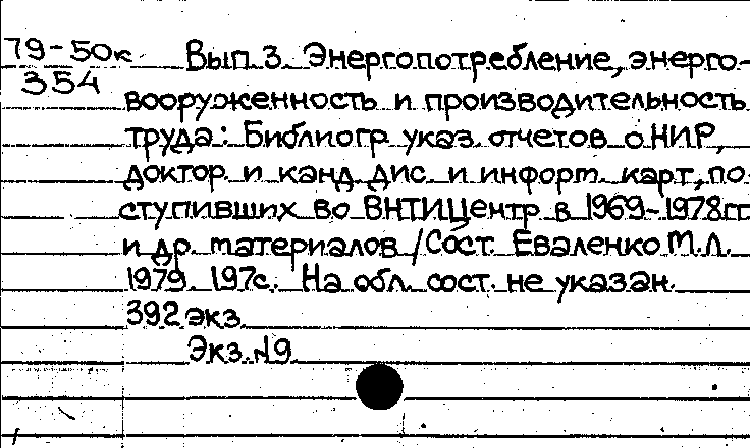 79-50к Вып. 3. Энергопотребление, энерго-
354
вооруженность и производительность
труда: Библиогр. указ. отчетов о НИР,
доктор. и канд. дис. и информ. карт, по-
ступивших во ВНТИЦентр в 1969-1978 гг.
и др. материалов / Сост. Еваленко М.Л.
1979. 197 с. На обл. сост. не указан.
392 экз.
Экз. №9